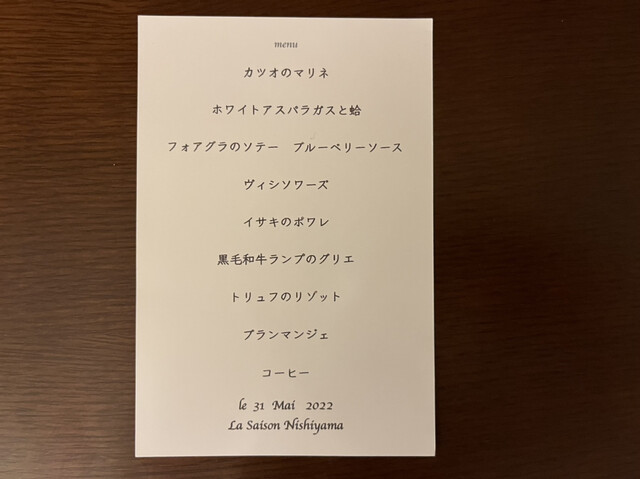 menu
カツオのマリネ
ホワイトアスパラガスと蛤
フォアグラのソテー　ブルーベリーソース
ヴィシソワーズ
イサキのポワレ
黒毛和牛ランプのグリエ
トリュフのリゾット
ブランマンジェ
コーヒー
le 31 Mai 2022
La Saison Nishiyama